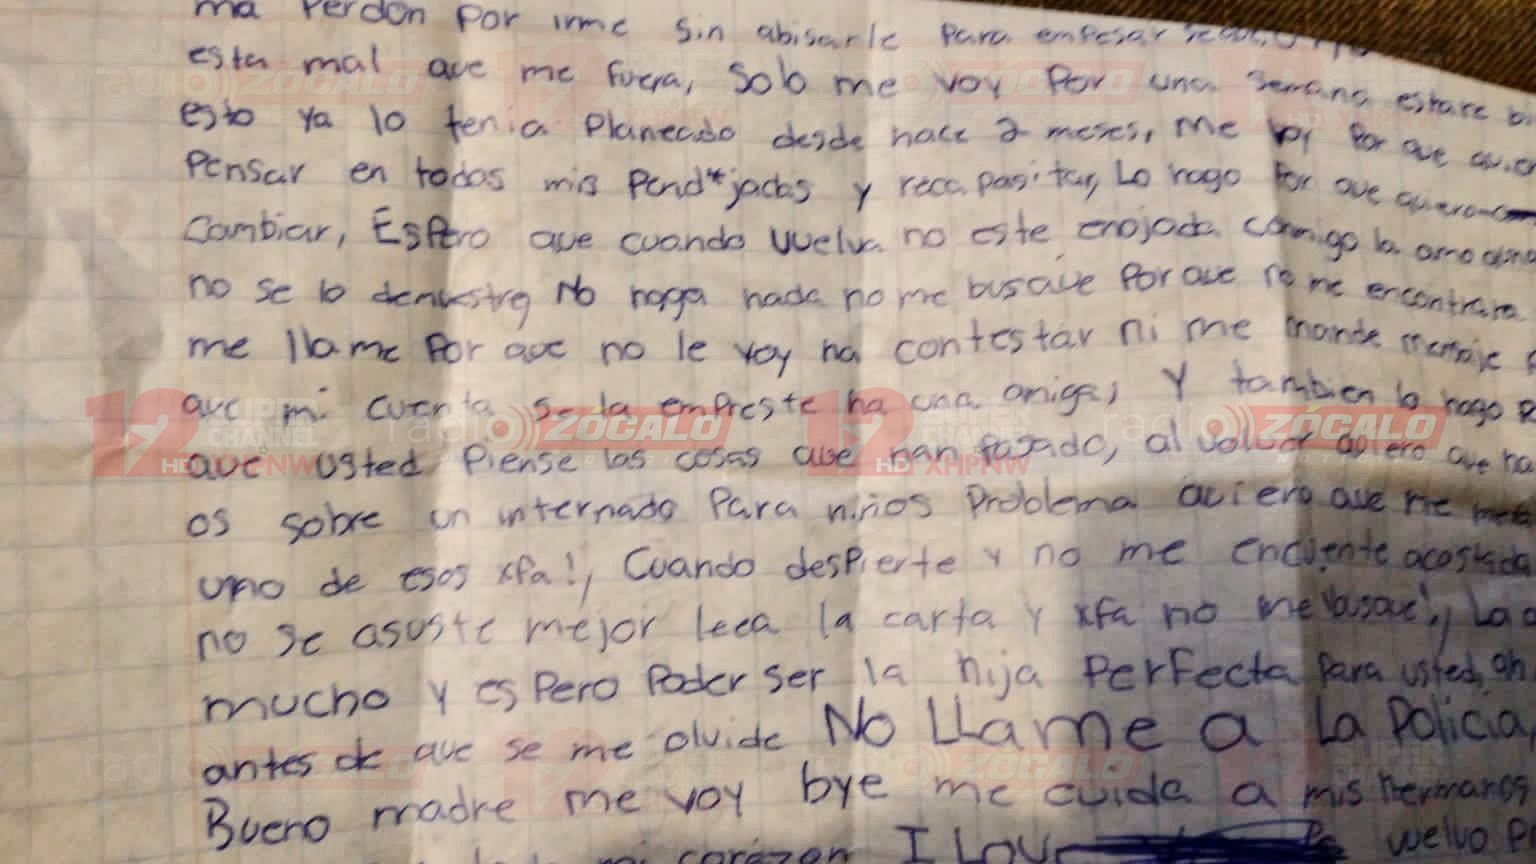 ma Perdon Por irme sin abisarle Para empesar
esta mal que me fuera, Solo me voy Por una semana, estare
esto ya lo tenia Planeado desde hace 2 meses, me voy Por que
Pensar en todas mis Pend*jadas y recapasitar, Lo hago Por que quiero
Cambiar, Espero que cuando vuelva no este enojada conmigo la amo
no se lo demuestre No haga nada no me busque Por que no me encontrara
me llame Por que no le voy ha contestar ni me mande mensaje
que mi cuenta se la empreste ha una amiga, Y tambien lo hago
que usted Piense las cosas que han pasado, al volver quiero que
os sobre un internado Para niños Problema quiero que me meta
uno de esos xfa!, Cuando despierte y no me encuente acostada
no se asuste mejor leea la carta y xfa no me busque!, La
mucho y espero Poder ser la hija Perfecta Para usted, ah
antes de que se me olvide No LLame a La Policia,
Bueno madre me voy bye me cuida a mis Hermanos
mi corazon I Love vuelvo
radio ZÓCALO NOTICIAS
12 SUPER CHANNEL HD XHPNW